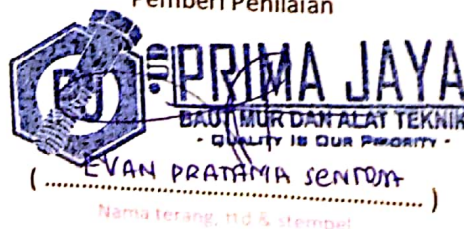 Pemberi Penilaian
PJ
UD. PRIMA JAYA
BAUT MUR DAN ALAT TEKNIK
- QUALITY IS OUR PRIORITY -
EVAN PRATAMA SENTOSA
(........................................)
Nama terang, ttd & stempel